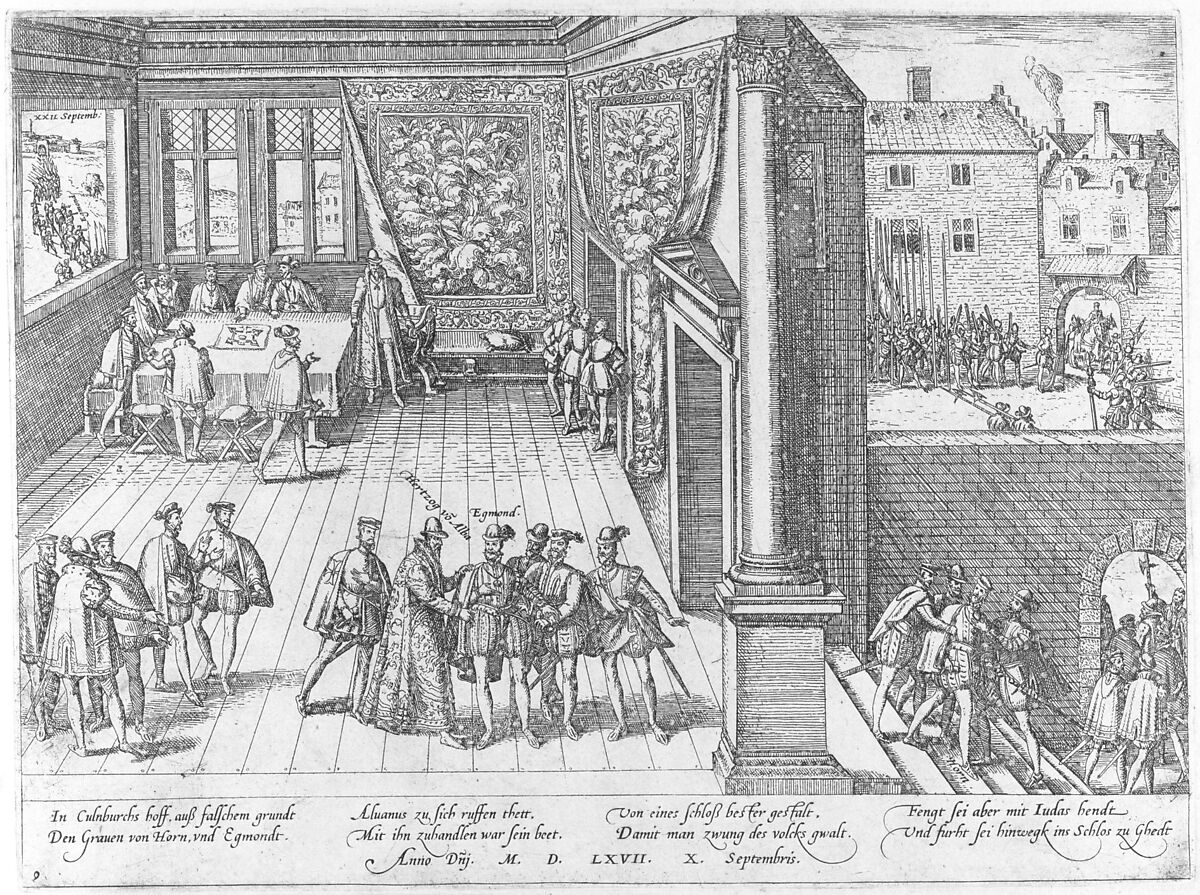 XXII Septemb:
Hertzog vō Alba
Egmond.
Horn
In Culnburchs hoff, auß falschem grundt
Den Grauen von Horn, vnd Egmondt.
Aluanus zu sich ruffen thett,
Mit ihn zuhandlen war sein beet.
Von eines schloß bester gestalt,
Damit man zwung des volcks gwalt.
Fengt sei aber mit Iudas hendt
Vnd furht sei hinwegk ins Schlos zu Ghedt
Anno Dnj. M. D. LXVII. X. Septembris.
9